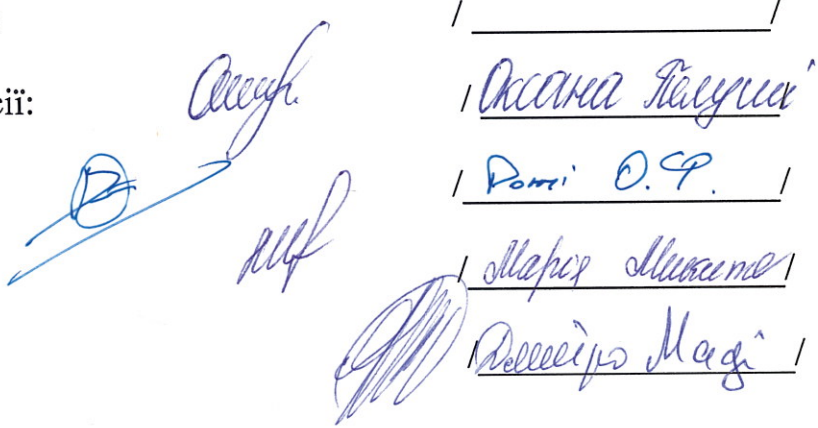 / /
сії:
/ Оксана Пелушкі /
/ Роті О.Ф. /
/ Марія Микита /
/ Дмитро Маді /